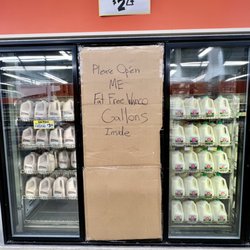 $2.79
Please Open
ME
Fat Free Winco
Gallons
Inside